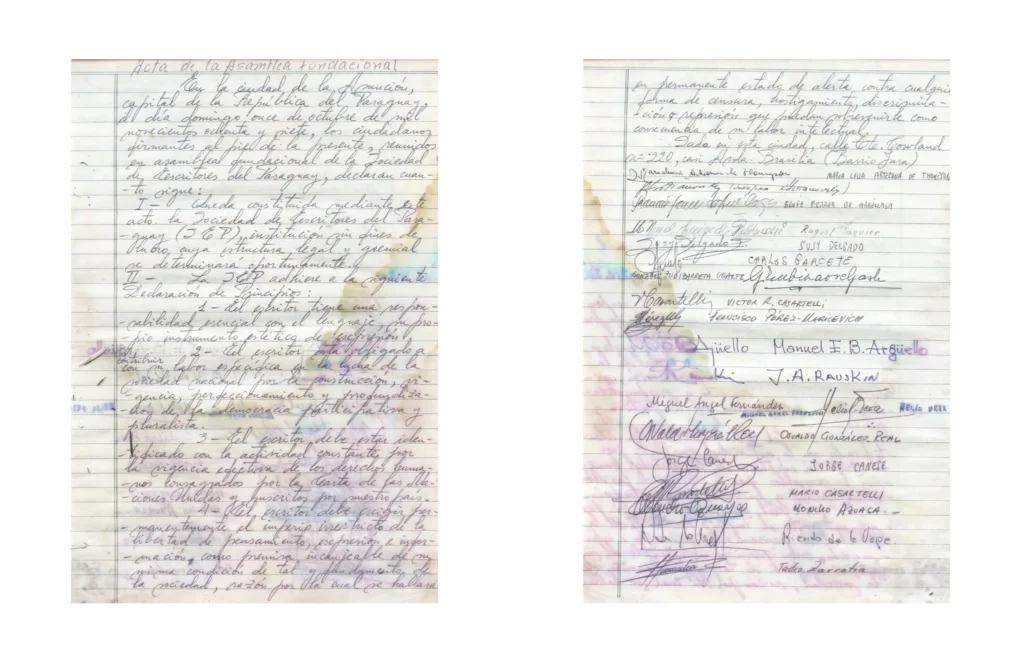 Acta de la Asamblea Fundacional
En la ciudad de la Asunción,
capital de la República del Paraguay,
a día domingo once de octubre de mil
novecientos ochenta y siete, los ciudadanos
firmantes al pie de la presente, reunidos
en asamblea fundacional de la Sociedad
de Escritores del Paraguay, declaran cuan-
-to sigue:
I — Queda constituida mediante este
acto la Sociedad de Escritores del Para-
-guay (SEP), institución sin fines de
lucro, cuya estructura legal y gremial
se determinará oportunamente.
II — La SEP adhiere a la siguiente
Declaración de Principios:
1 - El escritor tiene una respon-
-sabilidad esencial con el lenguaje, su pro-
-pio instrumento estético de expresión.
2 - El escritor está obligado a
contribuir
con su labor específica en la lucha de la
sociedad nacional por la construcción, vi-
-gencia, perfeccionamiento y profundiza-
-ción de la democracia participativa y
pluralista.
3 - El escritor debe estar iden-
-tificado con la actividad constante por
la vigencia efectiva de los derechos huma-
-nos consagrados por la Carta de las Na-
-ciones Unidas y suscritos por nuestro país.
4 - El escritor debe exigir per-
-manentemente el imperio irrestricto de la
libertad de pensamiento, expresión e infor-
-mación, como premisa ineludible de su
misma condición de tal y fundamento de
la sociedad, razón por la cual se hallará
en permanente estado de alerta, contra cualquier
forma de censura, hostigamiento, discrimina-
-ción o represión que puedan sobrevenirle como
consecuencia de su labor intelectual.
Dado en esta ciudad, calle Cte. Gowland
n= 220, casi Avda. Brasilia (Barrio Jara)
MARIA LUISA ARTECONA DE THOMPSON
RENÉE FERRER DE ARRÉLLAGA
Raquel Saguier
Susy Delgado E. SUSY DELGADO
CARLOS GARCETE
UGARTE
V Casartelli VICTOR R. CASARTELLI
FRANCISCO PÉREZ-MARICEVICH
Agüello Manuel E.B. Argüello
J.A. RAUSKIN
Miguel Angel Fernández
MIGUEL ANGEL FERNANDEZ HELIO VERA
OSVALDO GONZÁLEZ REAL
Jorge Canese JORGE CANESE
MARIO CASARTELLI
MONCHO AZUAGA -
Ricardo de la Vega.
Tadeo Zarratea